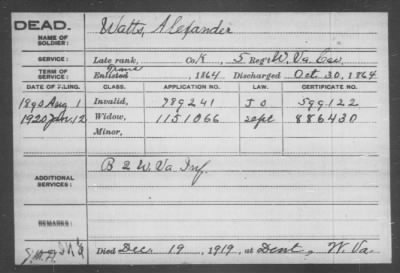 DEAD.
NAME OF SOLDIER: Watts, Alexander
SERVICE: Late rank, Co. K, 5 Reg't W. Va. Cav.
TERM OF SERVICE: Enlisted 1864 Discharged Oct. 30, 1864
DATE OF FILING. CLASS. APPLICATION NO. LAW. CERTIFICATE NO.
1890 Aug 1 Invalid, 789241 599.122
1920 Jan. 12 Widow, 1151066 Sept 886430
Minor,
ADDITIONAL SERVICES: B 2 W. Va. Inf.
REMARKS:
Died Dec. 19, 1919, at Dent, W. Va.